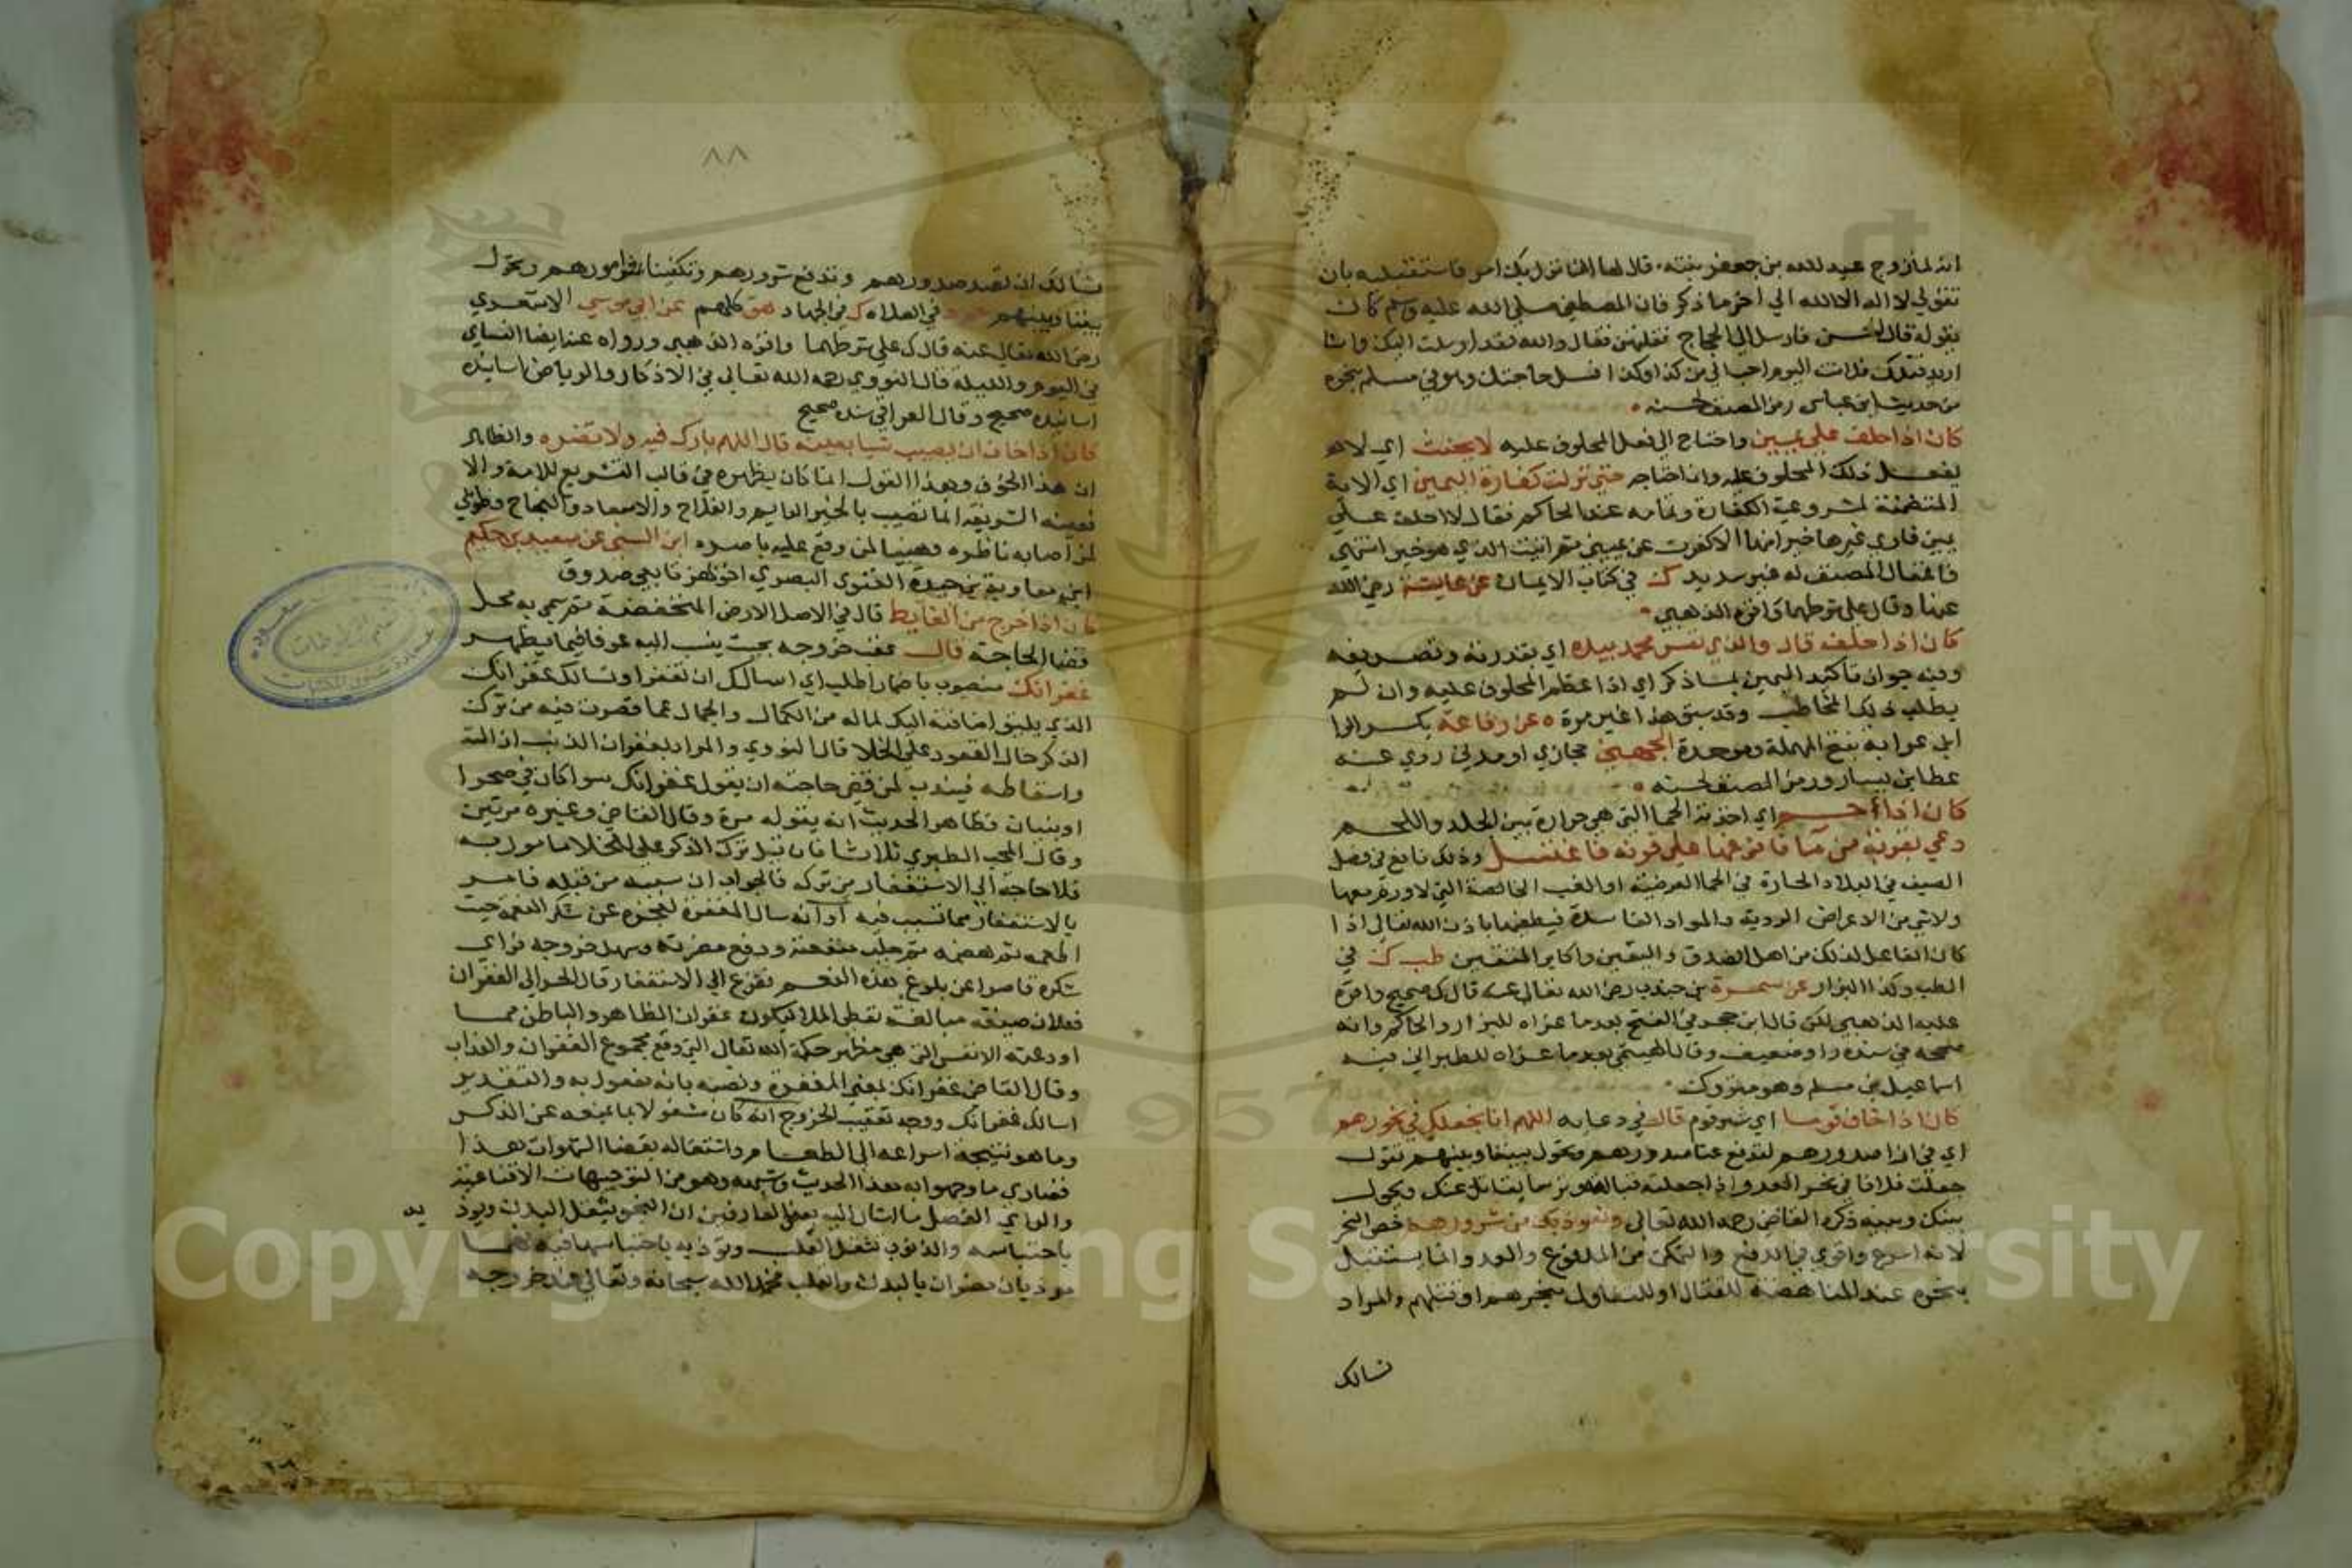 انه لما زوج عبد الله بن جعفر بنته قال لها ان نزل بك امر فاستقبليه بان
تقولي لا اله الا الله الي اخر ما ذكر فان المصطفي صلي الله عليه وسلم كان
يقوله قال الحسن فارسل الي الحجاج فقلتهن فقال والله لقد ارسلت اليك وانا
اريد قتلك فلانت اليوم احب الي من كذا وكذا فسل حاجتك وهو في مسلم بنحوه
من حديث ابن عباس رمز المصنف لحسنه
كان اذا حلف علي يمين واحتاج الي فعل المحلوف عليه لا يحنث اي لا
يفعل ذلك المحلوف عليه وان احتاجه حتي نزلت كفارة اليمين اي الاية
المتضمنة لمشروعية الكفارة وتمامه عند الحاكم فقال لا احلف علي
يمين فاري غيرها خيرا منها الا كفرت عن يميني ثم اتيت الذي هو خير انتهي
فاغفال المصنف له غير سديد ك في كتاب الايمان عن عايشة رضي الله
عنها وقال علي شرطهما واقره الذهبي
كان اذا حلف قال والذي نفس محمد بيده اي بقدرته وتصريفه
وفيه جواز تاكيد اليمين بما ذكر اي اذا عظم المحلوف عليه وان لم
يطلب ذلك المخاطب وقد سبق هذا غير مرة ه عن رفاعة بكسر الرا
ابن عرابة بفتح المهملة وموحدة الجهني حجازي او مدني روي عنه
عطا بن يسار ورمز المصنف لحسنه
كان اذا حم اي اخذته الحما التي هي حرارة بين الجلد واللحم
دعي بقربة من ما فافرغها علي قرنه فاغتسل وذلك نافع في فصل
الصيف في البلاد الحارة في الحما العرضية او الغب الخالصة التي لا ورم معها
ولا شي من الاعراض الردية والمواد الفاسدة فيطفيها باذن الله تعالي اذا
كان الفاعل لذلك من اهل الصدق واليقين واكابر المتقين طب ك في
الطب وكذا البزار عن سمرة بن جندب رضي الله تعالي عنه قال ك صحيح واقره
عليه الذهبي لكن قال ابن حجر في الفتح بعد ما عزاه للبزار والحاكم وانه
صححه في سنده راو ضعيف وقال الهيثمي بعد ما عزاه للطبراني فيه
اسماعيل بن مسلم وهو متروك
كان اذا خاف قوما اي شر قوم قال في دعايه اللهم انا نجعلك في نحورهم
اي في ازا صدورهم لتدفع عنا صدورهم وتحول بيننا وبينهم تقول
جعلت فلانا في نحر العدو اذا جعلته قبالته وترسا يقاتل عنك ويحول
بينك وبينه ذكره القاضي رحمه الله تعالي ونعوذ بك من شرورهم خص النحر
لانه اسرع واقوي في الدفع والتمكن من المدفوع والعدو انما يستقبل
بنحره عند المناهضة للقتال او للتفاول بنحرهم او قتلهم والمراد
نسالك
٨٨
نسالك ان تصد صدورهم وتدفع شرورهم وتكفينا امورهم وتحول
بيننا وبينهم في الصلاه ك في الجهاد هق كلهم عن ابي موسي الاشعري
رضي الله تعالي عنه قال ك علي شرطهما واقره الذهبي ورواه عنه ايضا النساي
في اليوم والليلة قال النووي رحمه الله تعالي في الاذكار والرياض اسانيده
اسانيده صحيح وقال العراقي سنده صحيح
كان اذا خاف ان يصيب شيا بعينه قال اللهم بارك فيه ولا تضره والظاهر
ان هذا الخوف وهذا القول انما كان يظهره في قالب التشريع للامة والا
فعينه الشريفة انما تصيب بالخير الدايم والفلاح والاسعاد والنجاح وطوبي
لمن اصابه ناظره وهنيا لمن وقع عليه باصره ابن السني عن سعيد بن حكيم
ابن معاوية بن حيدة القشيري البصري اخو بهز تابعي صدوق
كان اذا خرج من الغايط قال في الاصل الارض المنخفضة ثم سمي به محل
قضا الحاجة قال عقب خروجه بحيث ينسب اليه عرفا فيما يظهر
غفرانك منصوب باضمار اطلب اي اسالك ان تغفر او نسالك غفرانك
الذي يليق اضافته اليك لما له من الكمال والجمال عما قصرت فيه من ترك
الذكر حال القعود علي الخلا قال النووي والمراد بغفران الذنب ازالته
واسقاطه فيندب لمن قضي حاجته ان يقول غفرانك سوا كان في صحرا
او بنيان وظاهر الحديث انه يقوله مرة وقال القاضي وغيره مرتين
وقال المحب الطبري ثلاثا فان قيل ترك الذكر علي الخلا مامور به
فلا حاجة الي الاستغفار من تركه فالجواب ان سببه من قبله فامر
بالاستغفار مما تسبب فيه او انه سال المغفرة لعجزه عن شكر النعمة حيث
اطعمه ثم هضمه ثم جلب منفعته ودفع مضرته وسهل خروجه فراي
شكره قاصرا عن بلوغ هذه النعم ففزع الي الاستغفار قال الحرالي الغفران
فعلان صيغة مبالغة تعطي الملا ليكون غفران الظاهر والباطن مما
اودعته الانفس التي هي مظهر حكمة الله تعالي التي وقع مجموع الغفران والعذاب
وقال القاضي غفرانك بمعني المغفرة ونصبه بانه مفعول به والتقدير
اسالك غفرانك ووجه تعقيب الخروج انه كان مشغولا بما يمنعه عن الذكر
وما هو نتيجة اسراعه الي الطعام واشتغاله بقضا الشهوات هذا
قصاري ما وجهوا به هذا الحديث وشبهه وهو من التوجيهات الاقناعية
والراي الفصل ما اشار اليه بعض العارفين ان النجو يثقل البدن ويوذ
يه
باحتباسه والذنوب تثقل القلب وتوذيه باحتباسها فيه فهما
موذيان مضران بالبدن والقلب فحمد الله سبحانه وتعالي عند خروجه
Copyright © King Saud University
1957